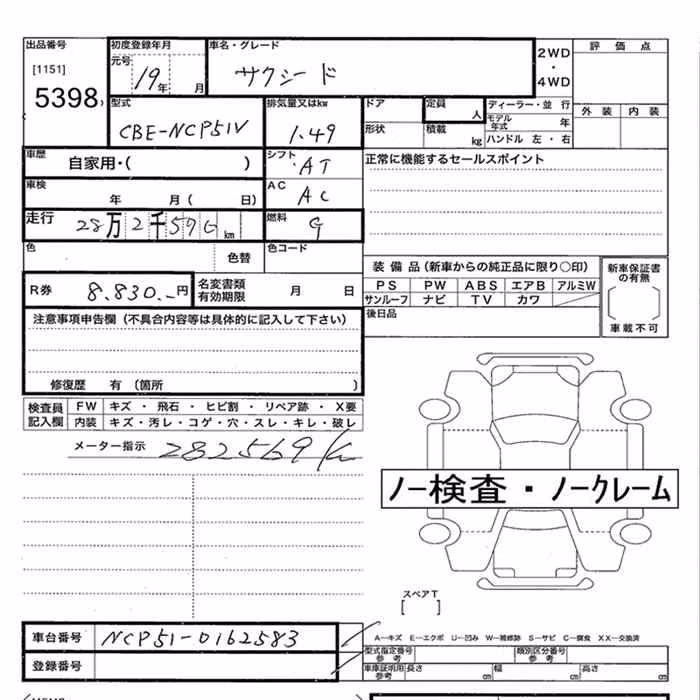 出品番号
[1151]
5398
初度登録年月
元号
19年 月
車名・グレード
サクシード
2WD
・
4WD
評価点
外装 内装
型式
CBE-NCP51V
排気量又はkw
1.49
ドア
形状
定員 人
積載 kg
ディーラー・並行
モデル年式 年
ハンドル 左・右
車歴
自家用・( )
シフト
AT
正常に機能するセールスポイント
車検
年 月( 日)
AC
AC
走行
28万2千576km
燃料
G
色
色替
色コード
装備品(新車からの純正品に限り○印)
PS PW ABS エアB アルミW
サンルーフ ナビ TV カワ
新車保証書の有無
車載不可
R券 8.830.-円
名変書類有効期限 月 日
後日品
注意事項申告欄(不具合内容等は具体的に記入して下さい)
修復歴 有〔箇所 〕
検査員記入欄
FW キズ・飛石・ヒビ割・リペア跡・X要
内装 キズ・汚レ・コゲ・穴・スレ・キレ・破レ
メーター指示 282569km
ノー検査・ノークレーム
スペアT
[ ]
車台番号 NCP51-0162583
登録番号
A―キズ E―エクボ U―凹み W―補修跡 S―サビ C―腐食 XX―交換済
型式指定番号参考
類別区分番号参考
車庫証明用参考 長さ cm 幅 cm 高さ cm